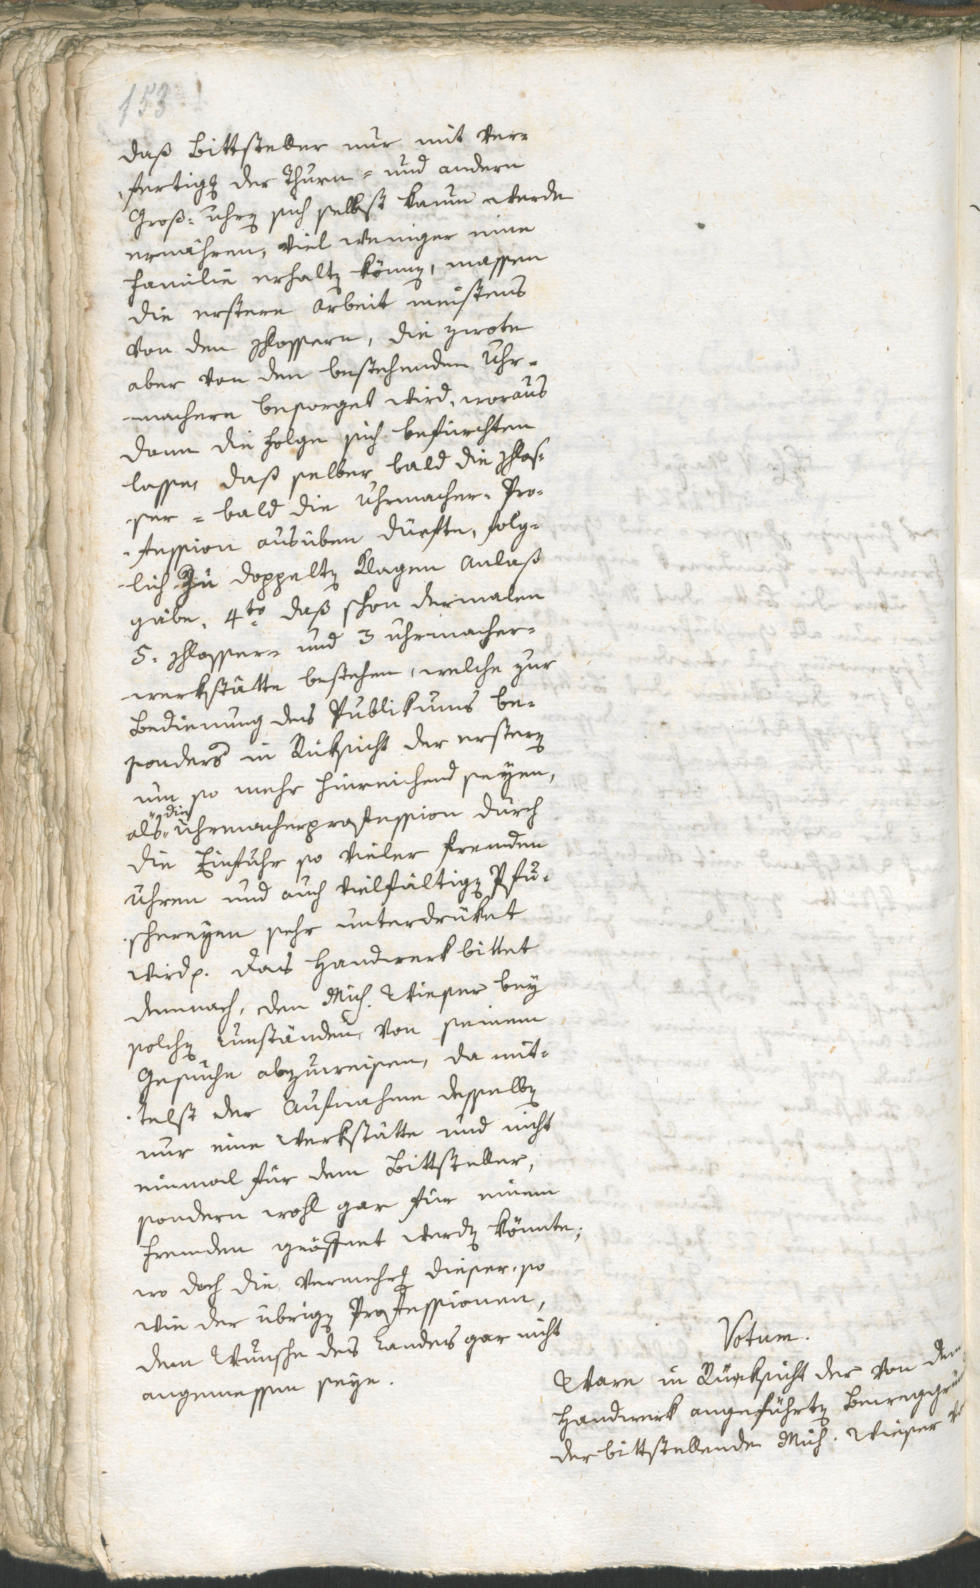 153
daß Bittsteller nur mit Ver-
fertigg der Thurn- und andern
Groß-Uhrn sich selbst kaum werde
ernähren, viel weniger eine
Familie erhaltn könn, massen
die erstere Arbeit meistens
von den Schlossern, die zwote
aber von den bestehenden Uhr-
machern besorget wird, woraus
dann die Folge sich befürchten
lasse, daß selber bald die Schlos-
ser- bald die Uhrmacher-Pro-
fession ausüben dürfte, folg-
lich zu doppeltn Klagen Anlaß
gäbe, 4to daß schon dermalen
5. Schlosser- und 3 Uhrmacher-
werkstätte bestehen, welche zur
Bedienung des Publikums be-
sonders in Rüksicht der erstern
um so mehr hinreichend seyen,
als die Uhrmacherprofession durch
die Einfuhr so vieler fremden
Uhren und auch vielfältign Pfu-
schereyen sehr unterdrüket
wird. Das Handwerk bittet
demnach, den Mich. Wieser bey
solchn Umständen von seinem
Gesuche abzuweisen, da mit-
telst der Aufnahme desselbn
nur eine Werkstätte und nicht
einmal für dem Bittsteller,
sondern wohl gar für einem
Fremden geöffnet werdn könnte;
wo doch die Vermehrg dieser, so
wie der übrign Professionen,
dem Wunsche des Landes gar nicht
angemessen seye.
Votum.
Ware in Rüksicht der von dem
Handwerk angeführtn Beweggrün
der bittstellende Mich. Wieser